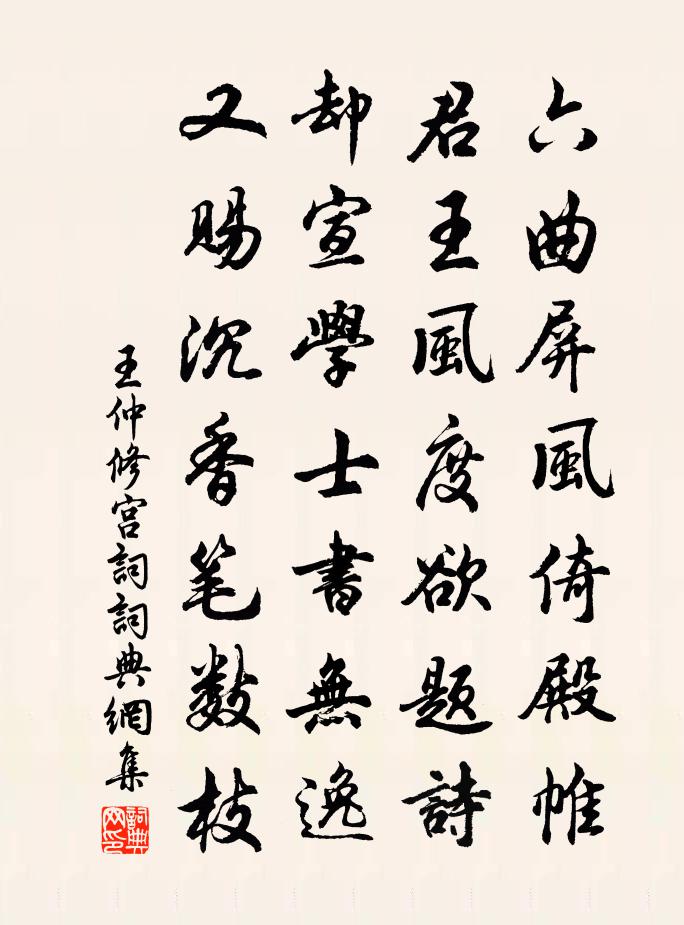 六曲屏風倚殿帷
君王風度欲题詩
却宣學士書無逸
又赐沉香笔数枝
王仲修宫詞詞典網集
詞典网印